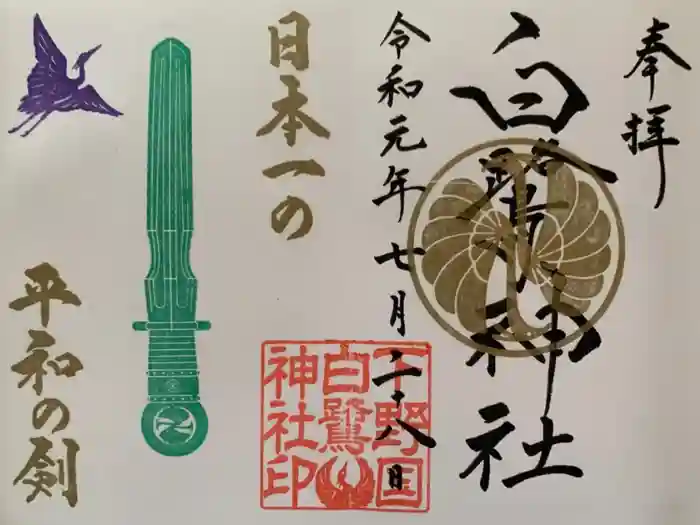 奉拝
白鷺神社
令和元年七月二十八日
日本一の
平和の剣
下野国
白鷺
神社印